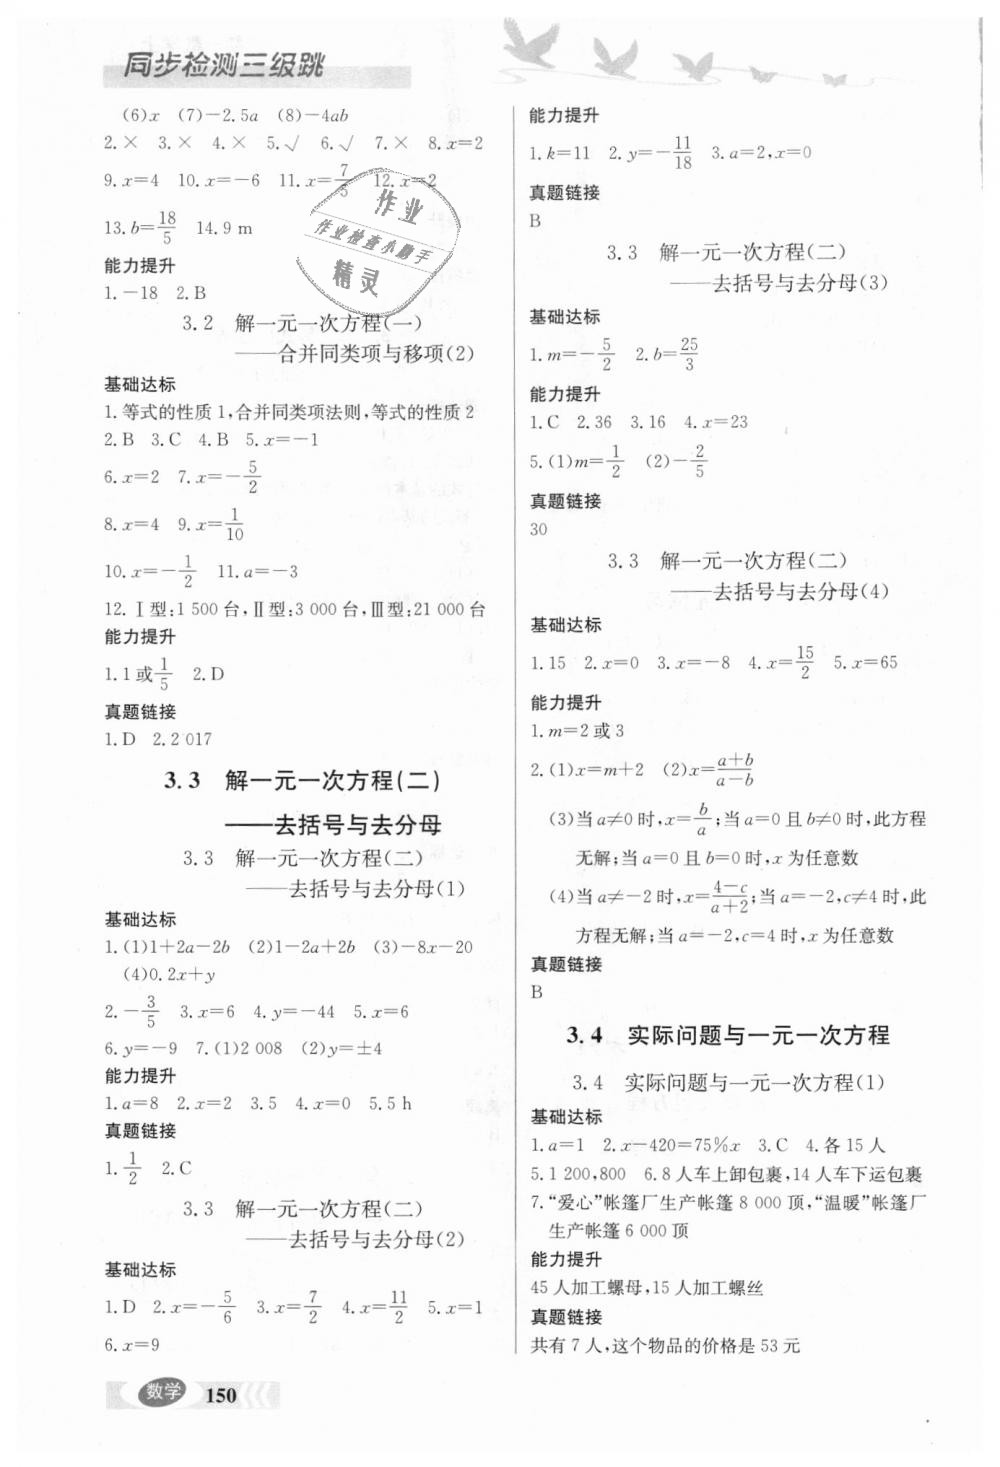 同步检测三级跳
(6)x (7)－2.5a (8)－4ab
2.× 3.× 4.× 5.√ 6.√ 7.× 8.x=2
9.x=4 10.x=－6 11.x=7/5 12.x=2
13.b=18/5 14.9 m
能力提升
1.－18 2.B
3.2 解一元一次方程(一)
——合并同类项与移项(2)
基础达标
1.等式的性质1,合并同类项法则,等式的性质2
2.B 3.C 4.B 5.x=－1
6.x=2 7.x=－5/2
8.x=4 9.x=1/10
10.x=－1/2 11.a=－3
12.Ⅰ型:1 500台,Ⅱ型:3 000台,Ⅲ型:21 000台
能力提升
1.1或1/5 2.D
真题链接
1.D 2.2 017
3.3 解一元一次方程(二)
——去括号与去分母
3.3 解一元一次方程(二)
——去括号与去分母(1)
基础达标
1.(1)1+2a－2b (2)1－2a+2b (3)－8x－20
(4)0.2x+y
2.－3/5 3.x=6 4.y=－44 5.x=6
6.y=－9 7.(1)2 008 (2)y=±4
能力提升
1.a=8 2.x=2 3.5 4.x=0 5.5 h
真题链接
1.1/2 2.C
3.3 解一元一次方程(二)
——去括号与去分母(2)
基础达标
1.D 2.x=－5/6 3.x=7/2 4.x=11/2 5.x=1
6.x=9
能力提升
1.k=11 2.y=－11/18 3.a=2,x=0
真题链接
B
3.3 解一元一次方程(二)
——去括号与去分母(3)
基础达标
1.m=－5/2 2.b=25/3
能力提升
1.C 2.36 3.16 4.x=23
5.(1)m=1/2 (2)－2/5
真题链接
30
3.3 解一元一次方程(二)
——去括号与去分母(4)
基础达标
1.15 2.x=0 3.x=－8 4.x=15/2 5.x=65
能力提升
1.m=2或3
2.(1)x=m+2 (2)x=(a+b)/(a－b)
(3)当a≠0时,x=b/a;当a=0且b≠0时,此方程
无解;当a=0且b=0时,x为任意数
(4)当a≠－2时,x=(4－c)/(a+2);当a=－2,c≠4时,此
方程无解;当a=－2,c=4时,x为任意数
真题链接
B
3.4 实际问题与一元一次方程
3.4 实际问题与一元一次方程(1)
基础达标
1.a=1 2.x－420=75%x 3.C 4.各15人
5.1 200,800 6.8人车上卸包裹,14人车下运包裹
7.“爱心”帐篷厂生产帐篷8 000顶,“温暖”帐篷厂
生产帐篷6 000顶
能力提升
45人加工螺母,15人加工螺丝
真题链接
共有7人,这个物品的价格是53元
数学 150
作业
作业检查小助手
精灵